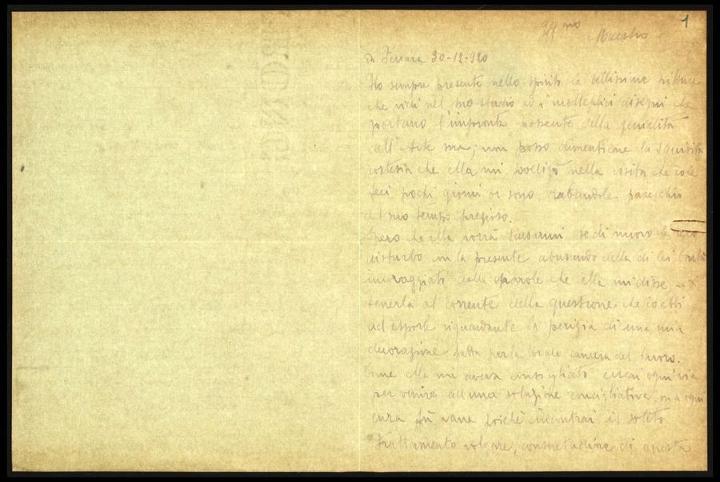 1
Ill.mo Maestro
Da Ferrara 30-12-920
Ho sempre presente nello spirito le bellissime pitture
che vidi nel suo studio ed i molteplici disegni che
portano l'impronta possente della genialità
all'Arte ma, non posso dimenticare la squisita
cortesia che ella mi volle nella visita che
feci pochi giorni or sono rubandole parecchio
del suo tempo prezioso.
Spero che ella vorrà scusarmi se di nuovo le reco
disturbo con la presente abusando della di lei bontà
incoraggiato dalle parole che ella mi disse
tenerla al corrente della questione che
ad esporle riguardante la perizia di una mia
decorazione fatta per la locale camera del lavoro.
Come ella mi aveva consigliato cercai ogni via
per venire ad una soluzione conciliativa, ma ogni
cura fu vana poichè incontrai il solito
trattamento volgare, di questa